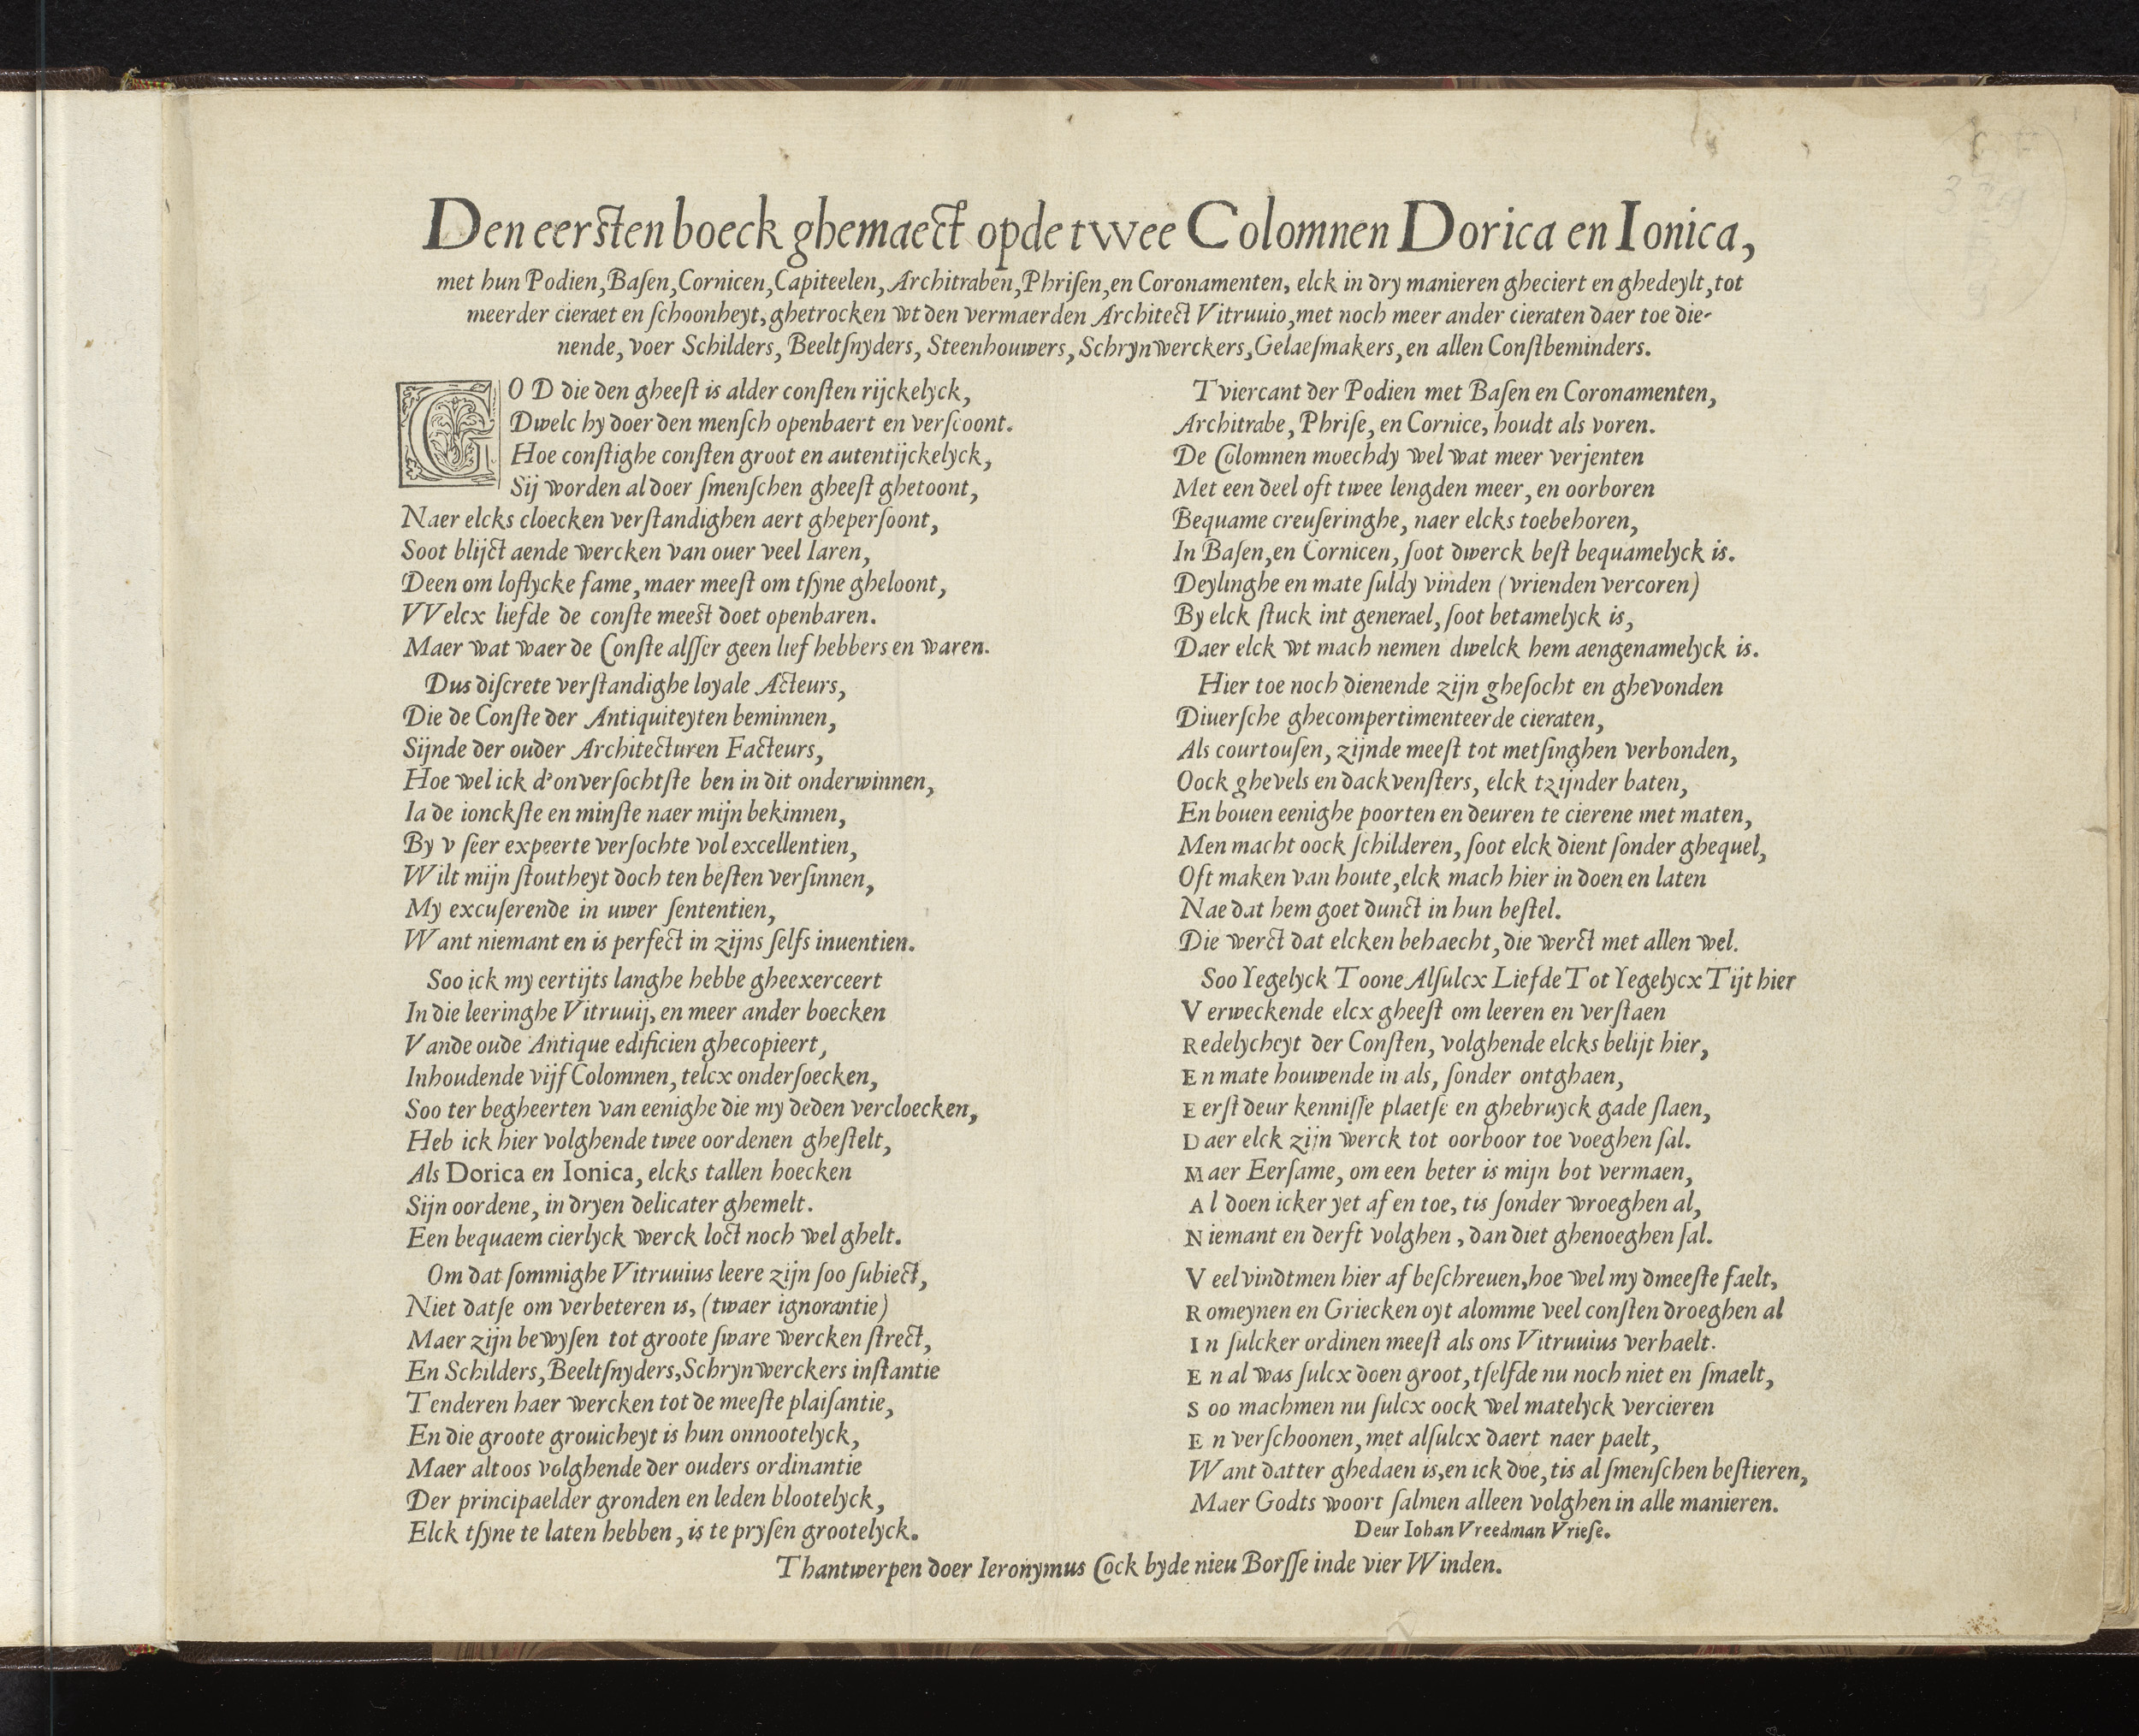 Den eersten boeck ghemaect op de twee Colomnen Dorica en Ionica,
met hun Podien, Baſen, Cornicen, Capiteelen, Architraben, Phriſen, en Coronamenten, elck in dry manieren gheciert en ghedeylt, tot
meerder cieraet en ſchoonheyt, ghetrocken wt den vermaerden Architect Vitruuio, met noch meer ander cieraten daer toe die-
nende, voer Schilders, Beeltſnyders, Steenhouwers, Schrynwerckers, Gelaeſmakers, en allen Conſtbeminders.
GOD die den gheeſt is alder conſten rijckelyck,
Dwelc hy doer den menſch openbaert en verſcoont.
Hoe conſtighe conſten groot en autentijckelyck,
Sij worden al doer ſmenſchen gheeſt ghetoont,
Naer elcks cloecken verſtandighen aert gheperſoont,
Soot blijct aende wercken van ouer veel Iaren,
Deen om loflycke fame, maer meeſt om tſyne gheloont,
VVelcx liefde de conſte meest doet openbaren.
Maer wat waer de Conſte alſſer geen liefhebbers en waren.
Dus diſcrete verſtandighe loyale Acteurs,
Die de Conſte der Antiquiteyten beminnen,
Sijnde der ouder Architecturen Facteurs,
Hoe wel ick d'onverſochtſte ben in dit onderwinnen,
Ia de ionckſte en minſte naer mijn bekinnen,
By v ſeer expeerte verſochte vol excellentien,
Wilt mijn ſtoutheyt doch ten beſten verſinnen,
My excuſerende in uwer ſententien,
Want niemant en is perfect in zijns ſelfs inuentien.
Soo ick my eertijts langhe hebbe gheexerceert
In die leeringhe Vitruuij, en meer ander boecken
Vande oude Antique edificien ghecopieert,
Inhoudende vijf Colomnen, telcx onderſoecken,
Soo ter begheerten van eenighe die my deden vercloecken,
Heb ick hier volghende twee oordenen gheſtelt,
Als Dorica en Ionica, elcks tallen hoecken
Sijn oordene, in dryen delicater ghemelt.
Een bequaem cierlyck werck loct noch wel ghelt.
Om dat ſommighe Vitruuius leere zijn ſoo ſubiect,
Niet datſe om verbeteren is, (twaer ignorantie)
Maer zijn bewyſen tot groote ſware wercken ſtrect,
En Schilders, Beeltſnyders, Schrynwerckers inſtantie
Tenderen haer wercken tot de meeſte plaiſantie,
En die groote grouicheyt is hun onnootelyck,
Maer altoos volghende der ouders ordinantie
Der principaelder gronden en leden blootelyck,
Elck tſyne te laten hebben, is te pryſen grootelyck.
Tviercant der Podien met Baſen en Coronamenten,
Architrabe, Phriſe, en Cornice, houdt als voren.
De Colomnen moechdy wel wat meer verjenten
Met een deel oft twee lengden meer, en oorboren
Bequame creuſeringhe, naer elcks toebehoren,
In Baſen, en Cornicen, ſoot dwerck beſt bequamelyck is.
Deylinghe en mate ſuldy vinden (vrienden vercoren)
By elck ſtuck int generael, ſoot betamelyck is,
Daer elck wt mach nemen dwelck hem aengenamelyck is.
Hier toe noch dienende zijn gheſocht en ghevonden
Diuerſche ghecompertimenteerde cieraten,
Als courtouſen, zijnde meeſt tot metſinghen verbonden,
Oock ghevels en dackvenſters, elck tzijnder baten,
En bouen eenighe poorten en deuren te cierene met maten,
Men macht oock ſchilderen, ſoot elck dient ſonder ghequel,
Oft maken van houte, elck mach hier in doen en laten
Nae dat hem goet dunct in hun beſtel.
Die werct dat elcken behaecht, die werct met allen wel.
Soo Yegelyck Toone Alſulcx Liefde Tot Yegelycx Tijt hier
Verweckende elcx gheeſt om leeren en verſtaen
Redelycheyt der Conſten, volghende elcks belijt hier,
En mate houwende in als, ſonder ontghaen,
Eerſt deur kenniſſe plaetſe en ghebruyck gade ſlaen,
Daer elck zijn werck tot oorboor toe voeghen ſal.
Maer Eerſame, om een beter is mijn bot vermaen,
Al doen icker yet af en toe, tis ſonder wroeghen al,
Niemant en derft volghen, dan diet ghenoeghen ſal.
Veel vindtmen hier af beſchreuen, hoe wel my dmeeſte faelt,
Romeynen en Griecken oyt alomme veel conſten droeghen al
In ſulcker ordinen meeſt als ons Vitruuius verhaelt.
En al was ſulcx doen groot, tſelfde nu noch niet en ſmaelt,
Soo machmen nu ſulcx oock wel matelyck vercieren
En verſchoonen, met alſulcx daert naer paelt,
Want datter ghedaen is, en ick doe, tis al ſmenſchen beſtieren,
Maer Godts woort ſalmen alleen volghen in alle manieren.
Deur Iohan Vreedman Vrieſe.
Thantwerpen doer Ieronymus Cock byde nieu Borſſe inde vier Winden.